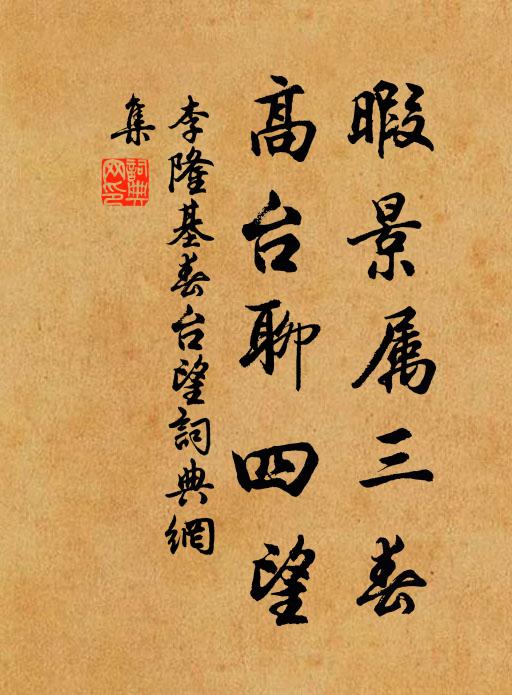 暇景属三春
高台聊四望
李隆基春台望詞典網
集
詞典网印